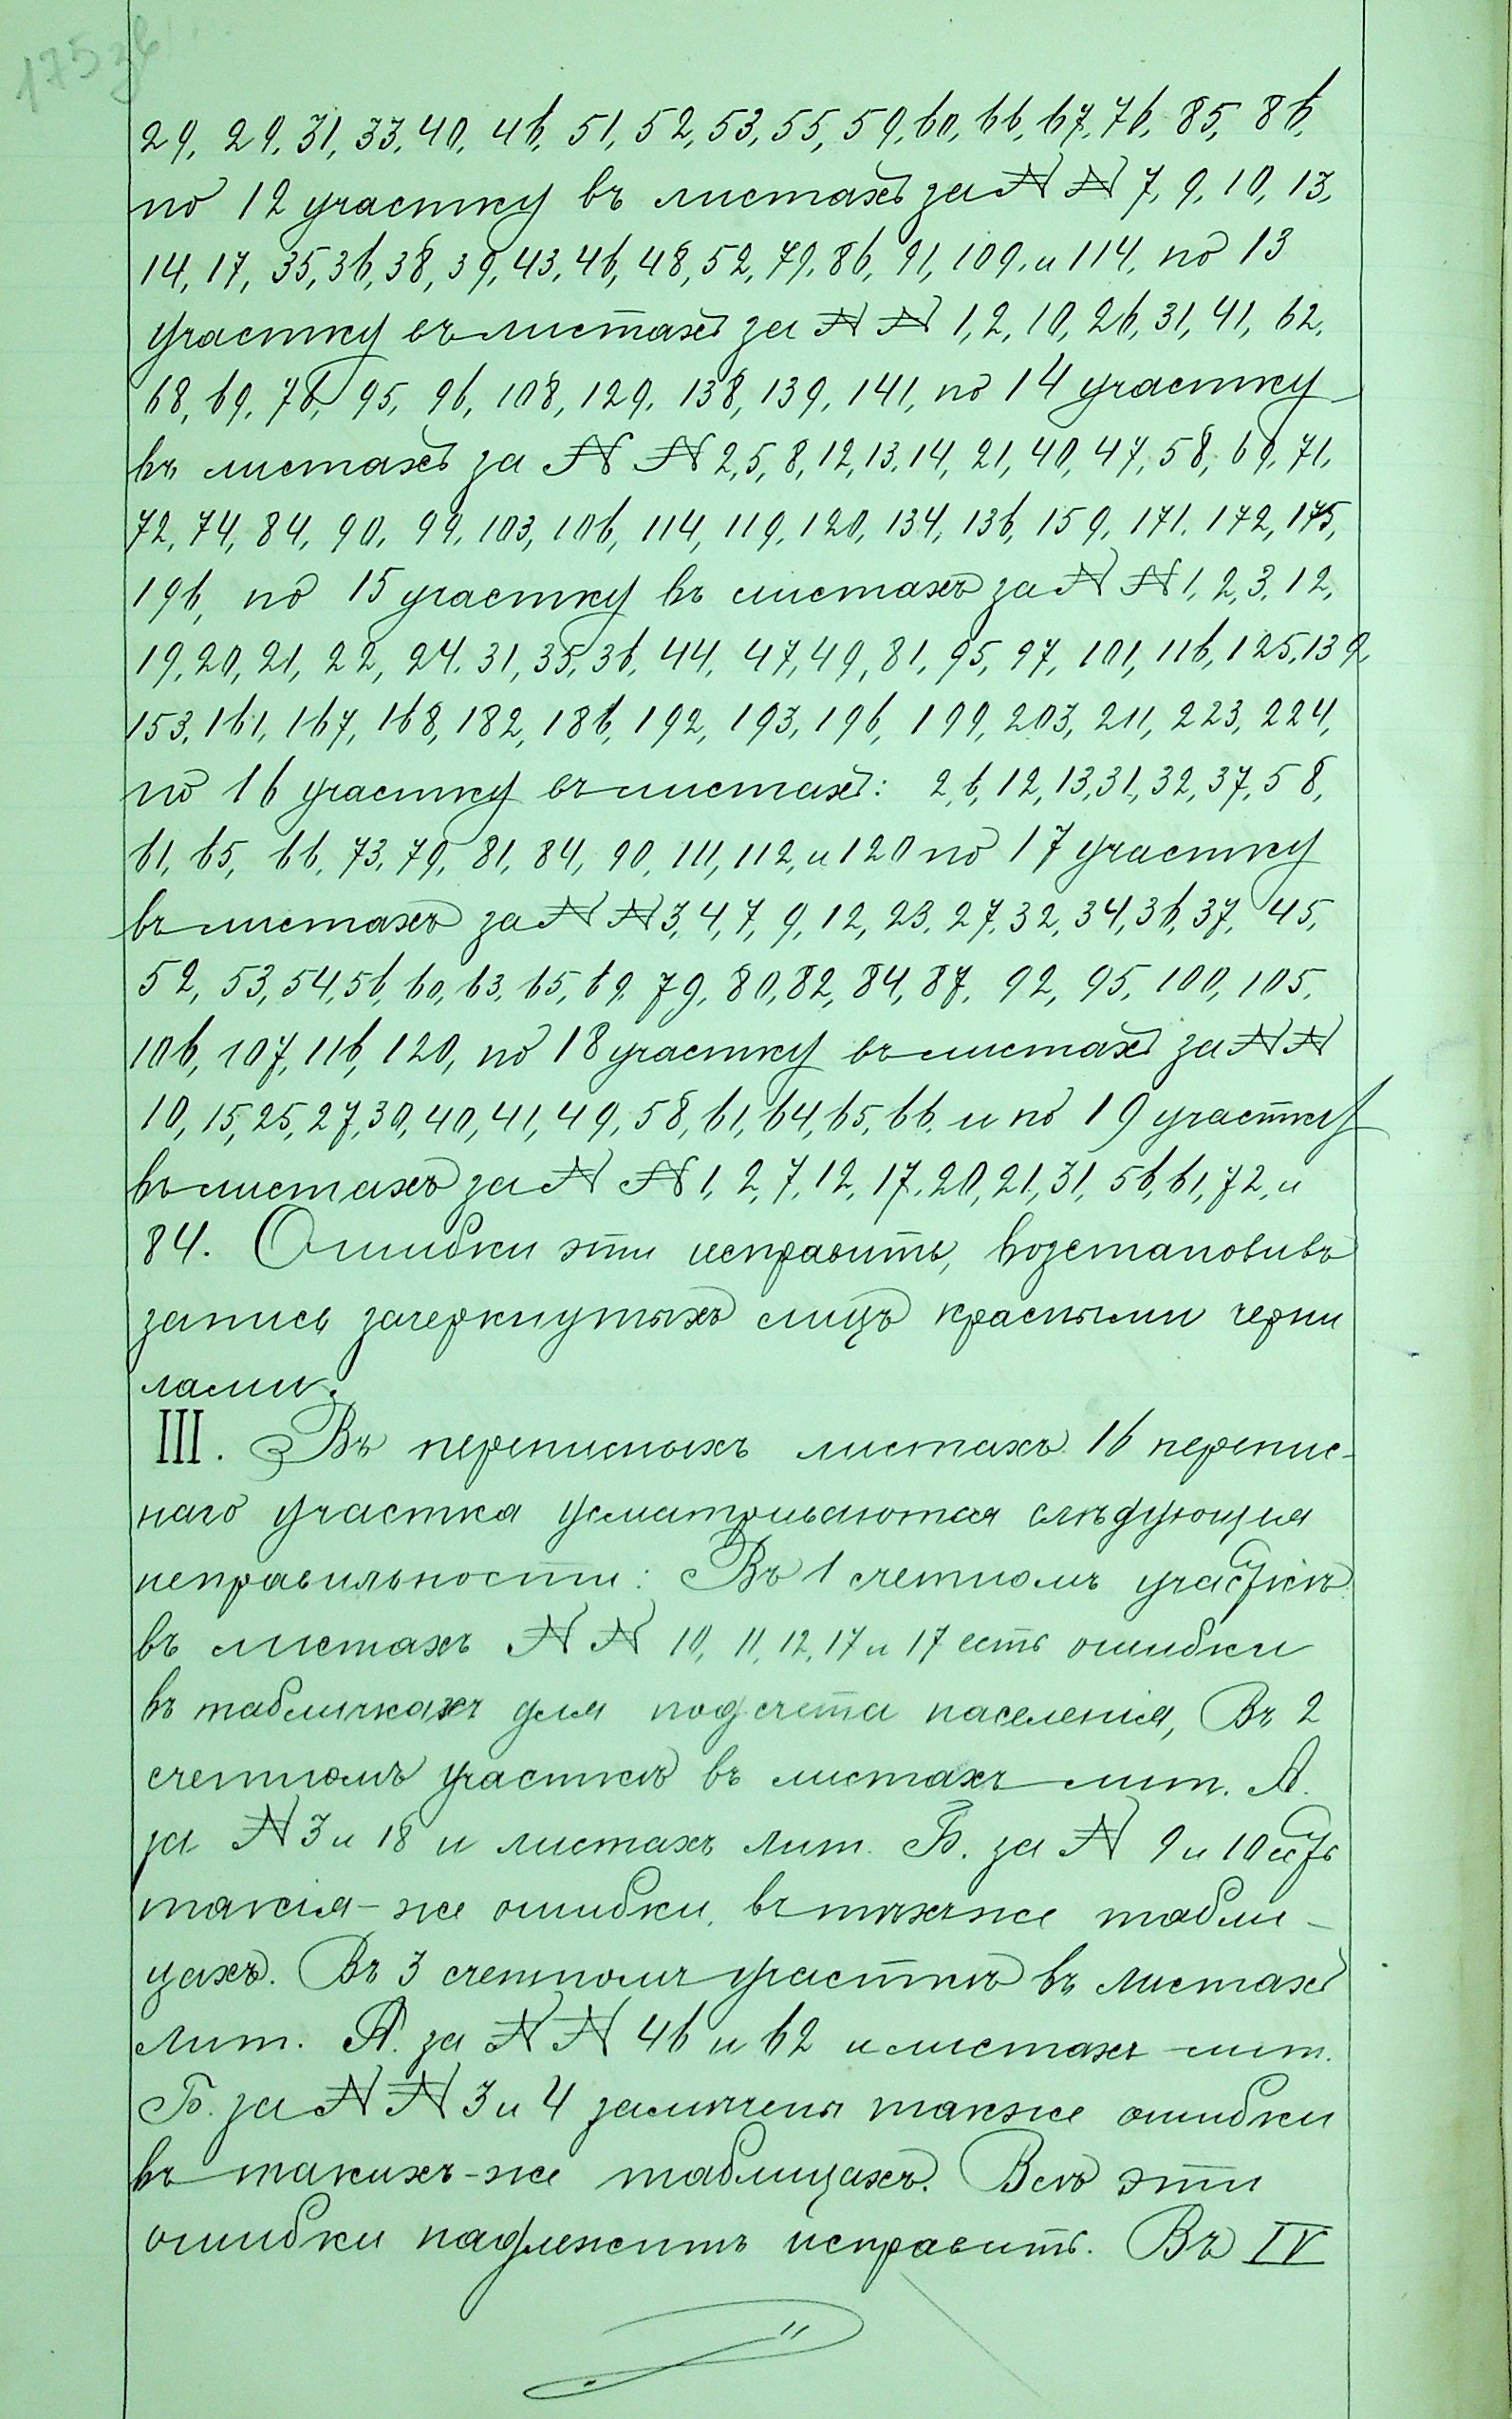 175 зв
29, 29, 31, 33, 40, 46, 51, 52, 53, 55, 59, 60, 66, 67, 76, 85, 86,
по 12 участку въ листахъ за № № 7, 9, 10, 13,
14, 17, 35, 36, 38, 39, 43, 46, 48, 52, 79, 86, 91, 109, и 114, по 13
участку въ листахъ за № № 1, 2, 10, 26, 31, 41, 62,
68, 69, 76, 95, 96, 108, 129, 138, 139, 141, по 14 участку
въ листахъ за № № 2, 5, 8, 12, 13, 14, 21, 40, 47, 58, 69, 71,
72, 74, 84, 90, 99, 103, 106, 114, 119, 120, 134, 136, 159, 171, 172, 175,
196, по 15 участку въ листахъ за № № 1, 2, 3, 12,
19, 20, 21, 22, 24, 31, 35, 36, 44, 47, 49, 81, 95, 97, 101, 116, 125, 139,
153, 161, 167, 168, 182, 186, 192, 193, 196, 199, 203, 211, 223, 224,
по 16 участку въ листахъ: 2, 6, 12, 13, 31, 32, 37, 58,
61, 65, 66, 73, 79, 81, 84, 90, 111, 112, и 120 по 17 участку
въ листахъ за № № 3, 4, 7, 9, 12, 23, 27, 32, 34, 36, 37, 45,
52, 53, 54, 56, 60, 63, 65, 69, 79, 80, 82, 84, 87, 92, 95, 100, 105,
106, 107, 116, 120, по 18 участку въ листахъ за № №
10, 15, 25, 27, 30, 40, 41, 49, 58, 61, 64, 65, 66, и по 19 участку
въ листахъ за № № 1, 2, 7, 12, 17, 20, 21, 31, 56, 61, 72, и
84. Ошибки эти исправить, возстановивъ
запись зачеркнутыхъ лицъ красными черни
лами.
III. Въ переписныхъ листахъ 16 перепис-
наго участка усматриваются слѣдующія
неправильности: Въ 1 счетномъ участкѣ
въ листахъ № № 10, 11, 12, 17 и 17 есть ошибки
въ табличкахъ для подсчета населенія, Въ 2
счетномъ участкѣ въ листахъ лит. А.
за № 3 и 18 и листахъ лит. Б. за № 9 и 10 есть
такія-же ошибки, въ тѣхъ же табли-
цахъ. Въ 3 счетномъ участкѣ въ листахъ
лит. А. за № № 46 и 62 и листахъ лит.
Б. за № № 3 и 4 замѣчены также ошибки
въ такихъ-же таблицахъ. Всѣ эти
ошибки надлежитъ исправить. Въ IV